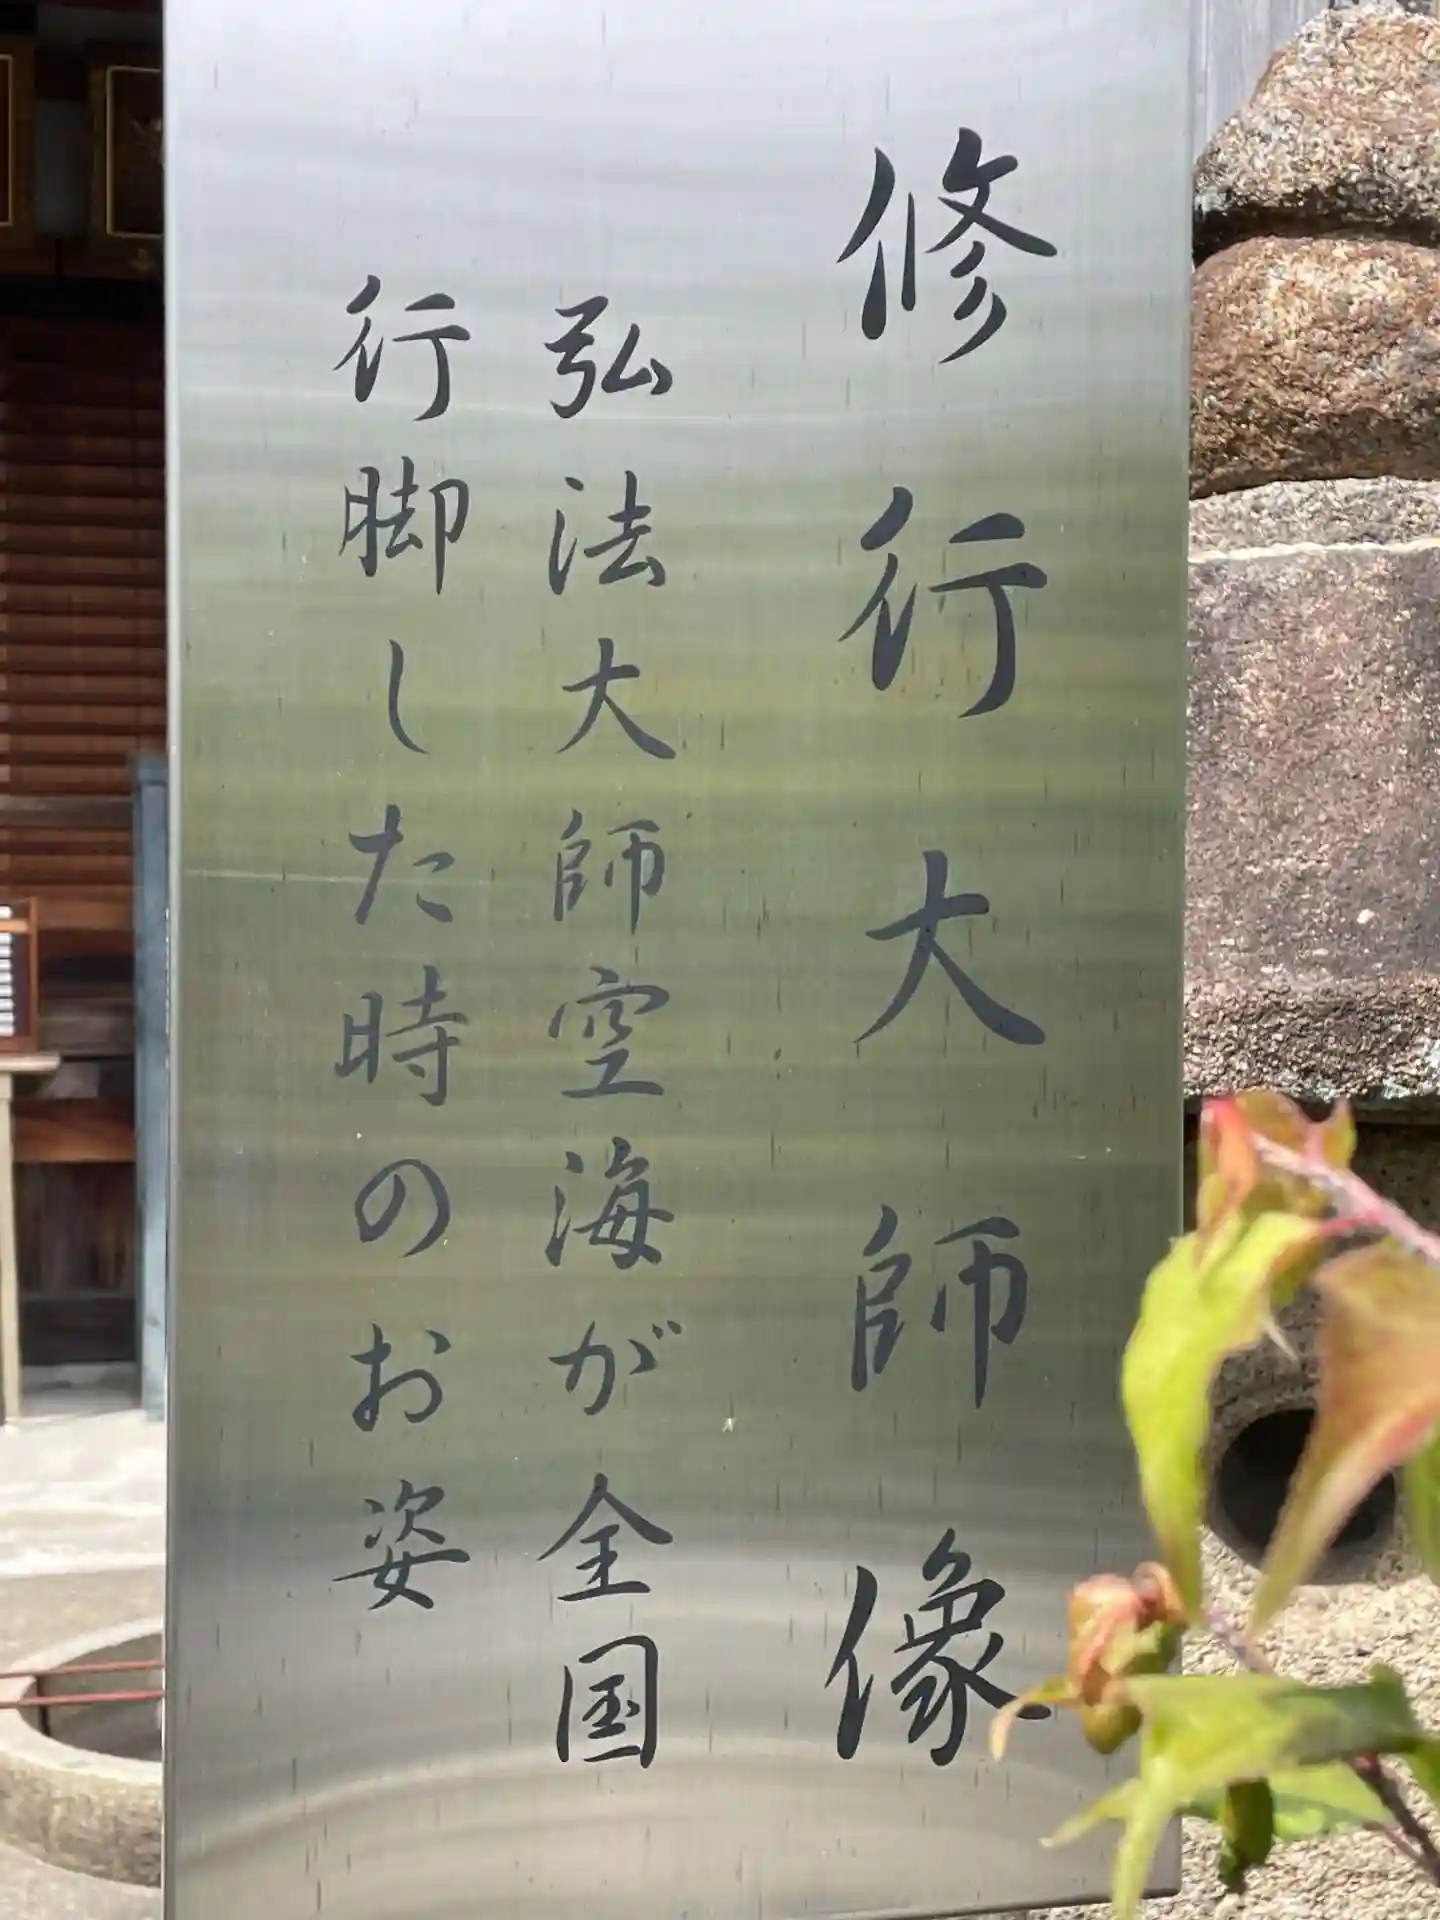 修行大師像
弘法大師空海が全国
行脚した時のお姿